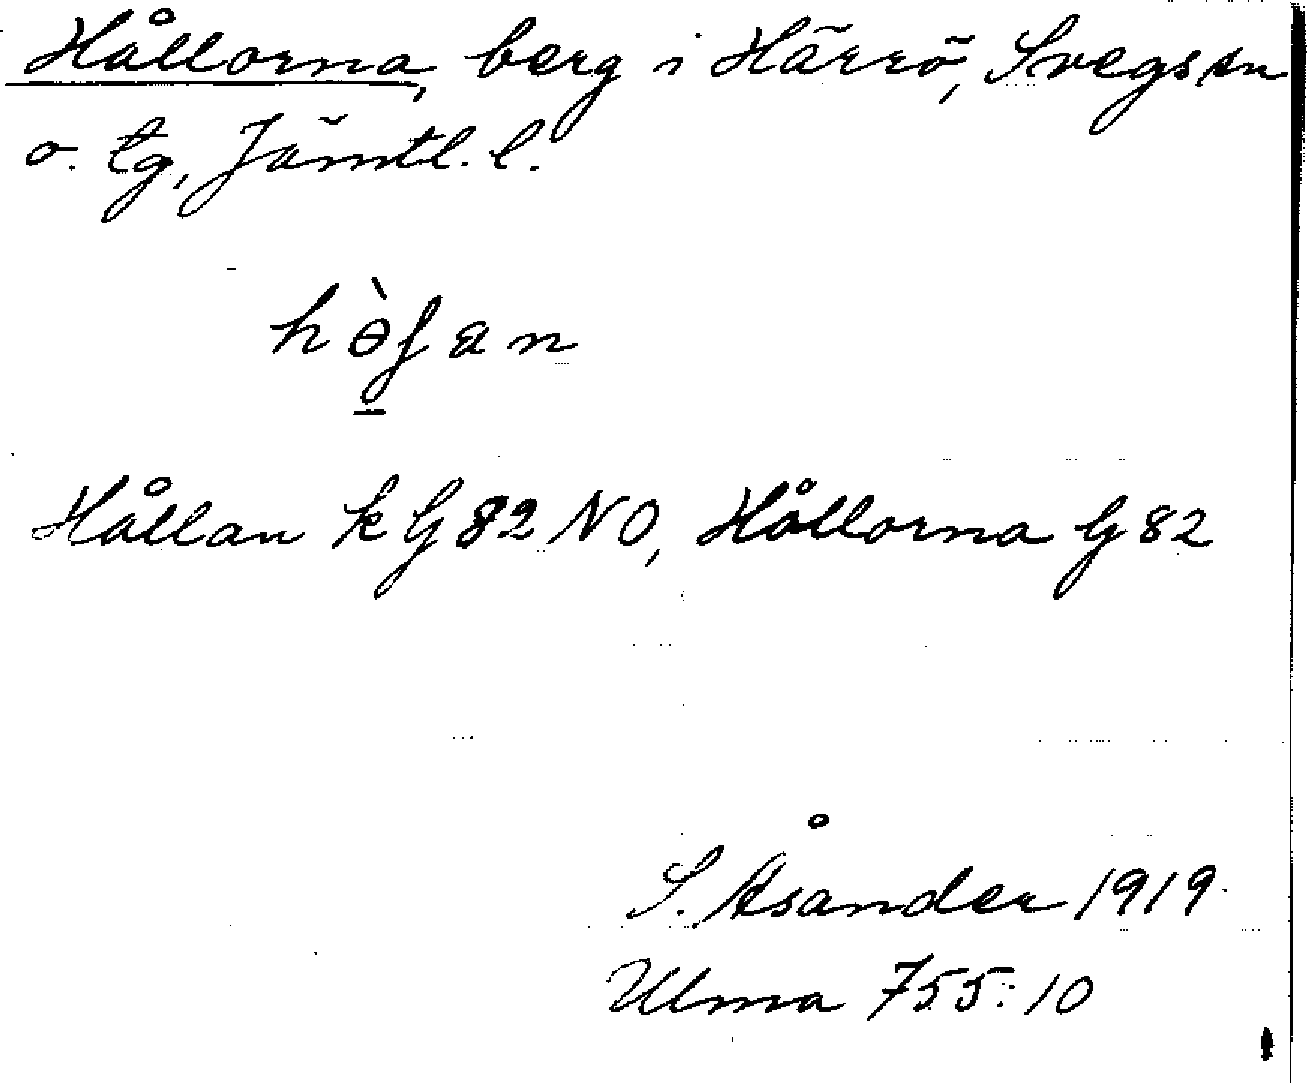 Hållorna, berg i Härrö, Svegs sn
o. tg, Jämtl. l.
hɵ̀ʃan
Hållan k G 82 NO, Hållorna G 82
S. Åsander 1919
Ulma 755:10